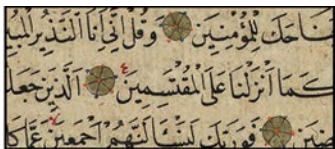 ضَ جَنَاحَكَ لِلْمُؤْمِنِينَ وَقُلْ اِنِّى اَنَا النَّذِيرُ الْمُبِينُ
كَمَا اَنْزَلْنَا عَلَى الْمُقْتَسِمِينَ اَلَّذِينَ جَعَلُ
فَوَرَبِّكَ لَنَسْـَٔلَنَّهُمْ اَجْمَعِينَ عَمَّا كَا